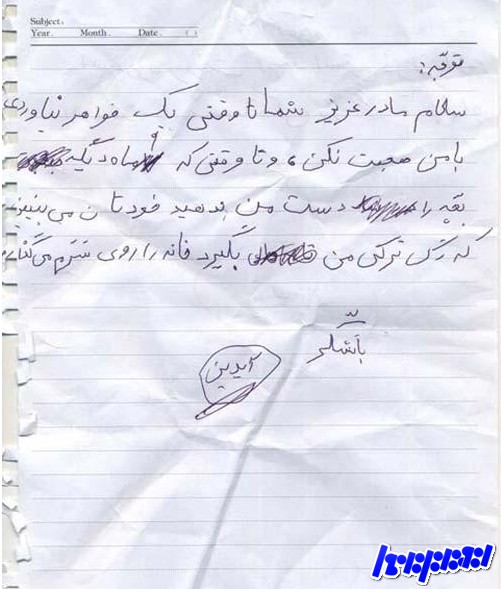 Subject:
Year. Month. Date. ( )
توجه :
سلام مادر عزیز شما تا وقتی یک خواهر نیاوردی
با من صحبت نکن ، و تا وقتی که ۹ ماه دیگه
بچه را دست من بدهید خودتان می بینید
که رگ ترکی من بگیرد خانه را روی سرم می گذارم
باتشکر
آیدین